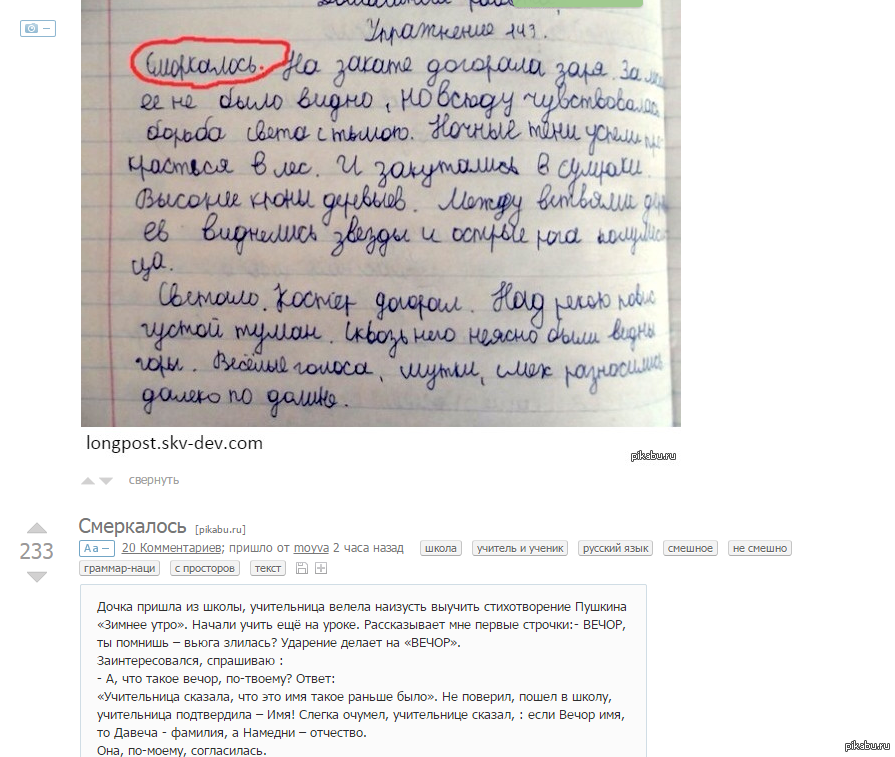 Упражнение 143.
Сморкалось. На закате догорала заря. За
ее не было видно, но всюду чувствовалась
борьба света с тьмою. Ночные тени успели про-
красться в лес. И закутались в сумраки.
Высокие кроны деревьев. Между ветвями дере
ев виднелись звезды и острые рога полумеся
ца.
Светало. Костёр догорал. Над рекою повис
густой туман. Сквозь него неясно были видны
горы. Весёлые голоса, шутки, смех разносились
далеко по долине.
longpost.skv-dev.com
pikabu.ru
свернуть
Смеркалось [pikabu.ru]
233
Aa – 20 Комментариев; пришло от moyva 2 часа назад школа учитель и ученик русский язык смешное не смешно
граммар-наци с просторов текст
Дочка пришла из школы, учительница велела наизусть выучить стихотворение Пушкина
«Зимнее утро». Начали учить ещё на уроке. Рассказывает мне первые строчки:- ВЕЧОР,
ты помнишь – вьюга злилась? Ударение делает на «ВЕЧОР».
Заинтересовался, спрашиваю :
- А, что такое вечор, по-твоему? Ответ:
«Учительница сказала, что это имя такое раньше было». Не поверил, пошел в школу,
учительница подтвердила – Имя! Слегка очумел, учительнице сказал, : если Вечор имя,
то Давеча - фамилия, а Намедни – отчество.
Она, по-моему, согласилась.
pikabu.ru